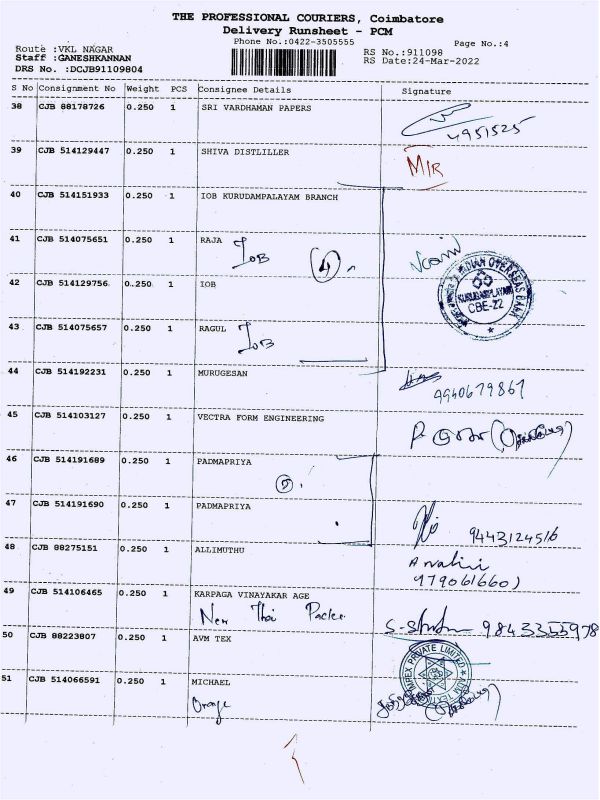 THE PROFESSIONAL COURIERS, Coimbatore
Delivery Runsheet - PCM
Phone No.:0422-3505555
Page No.:4
Route :VKL NAGAR
RS No.:911098
Staff :GANESHKANNAN
RS Date:24-Mar-2022
DRS No. :DCJB91109804
S No Consignment No Weight PCS Consignee Details Signature
38 CJB 88178726 0.250 1 SRI VARDHAMAN PAPERS
4951525
39 CJB 514129447 0.250 1 SHIVA DISTLILLER
M/R
40 CJB 514151933 0.250 1 IOB KURUDAMPALAYAM BRANCH
41 CJB 514075651 0.250 1 RAJA IOB
4
INDIAN OVERSEAS BANK
KURUDAMPALAYAM
CBE-22
42 CJB 514129756 0.250 1 IOB
43 CJB 514075657 0.250 1 RAGUL IOB
44 CJB 514192231 0.250 1 MURUGESAN
9940679867
45 CJB 514103127 0.250 1 VECTRA FORM ENGINEERING
46 CJB 514191689 0.250 1 PADMAPRIYA
47 CJB 514191690 0.250 1 PADMAPRIYA
9443124516
48 CJB 88275151 0.250 1 ALLIMUTHU
49 CJB 514106465 0.250 1 KARPAGA VINAYAKAR AGE
New Thai
50 CJB 88223807 0.250 1 AVM TEX
IMPEX PRIVATE LIMITED
51 CJB 514066591 0.250 1 MICHAEL
Orange